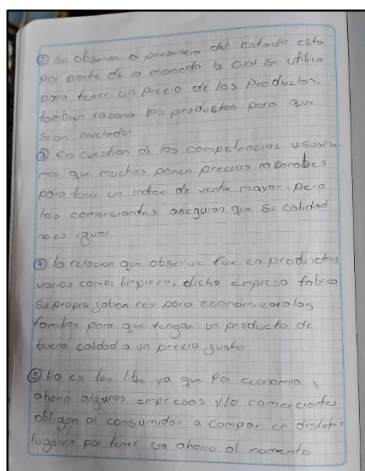 ② Se observa o presencia del estado esta
por parte de la moneda la cual se utiliza
para tener un precio de los productos,
tambien razona los productos para que
sean nivelados
③ En cuestion de las competencias
mos que muchos ponen precios razonables
para tener un indice de venta mayor, pero
los comerciantes aseguran que su calidad
no es igual
④ la relacion que observe fue en productos
varios como limpieza, dicha empresa fabrica
su propio jabon para economizar a las
familias para que tengan un producto de
buena calidad a un precio justo
⑤ No es tan libre ya que por economia y
ahorro algunos empresas y/o comerciantes
obligan al consumidor a comprar en distintos
lugares por tener un ahorro al momento